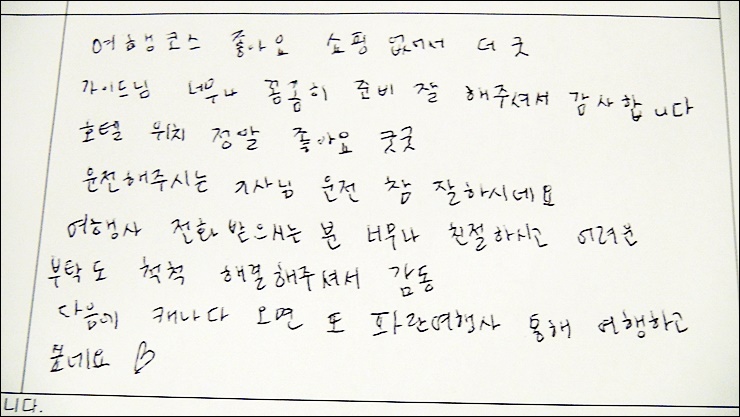 여행코스 좋아요 쇼핑 없어서 더 굿
가이드님 너무나 꼼꼼히 준비 잘 해주셔서 감사합니다
호텔 위치 정말 좋아요 굿굿
운전해주시는 기사님 운전 참 잘하시네요
여행사 전화 받으시는 분 너무나 친절하시고 어려운
부탁도 척척 해결해주셔서 감동
다음에 캐나다 오면 또 파란여행사 통해 여행하고
니다.